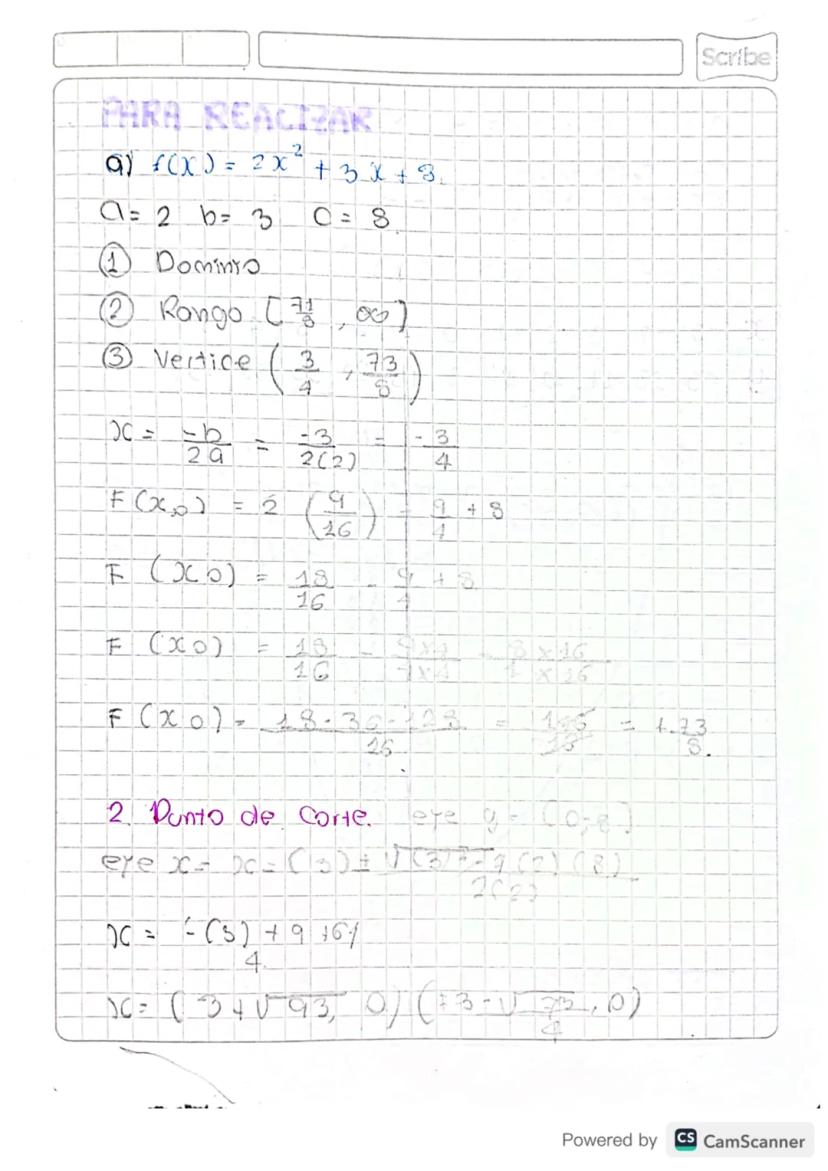 Scribe
PARA REALIZAR
a) f(x) = 2x² + 3x + 8.
a = 2 b = 3 c = 8.
① Dominio
② Rango [71/8, ∞]
③ Vertice (3/4, 73/8)
x = -b/2a = -3/2(2) = -3/4
F(x,0) = 2 (9/16) - 9/4 + 8
F (x0) = 18/16 - 9/4 + 8
F (x0) = 18/16 - 8 x 16
F (x0) = 18-36-128/16 = = 73/8.
2. Punto de Corte. eje y = (0,-8)
eje x = x = (3) ± √(3)²-4(2)(8)/2(2)
x = -(3) + 9 + 64/4
x = (3 + √93, 0) (+3 - √73/4, 0)
Powered by CS CamScanner